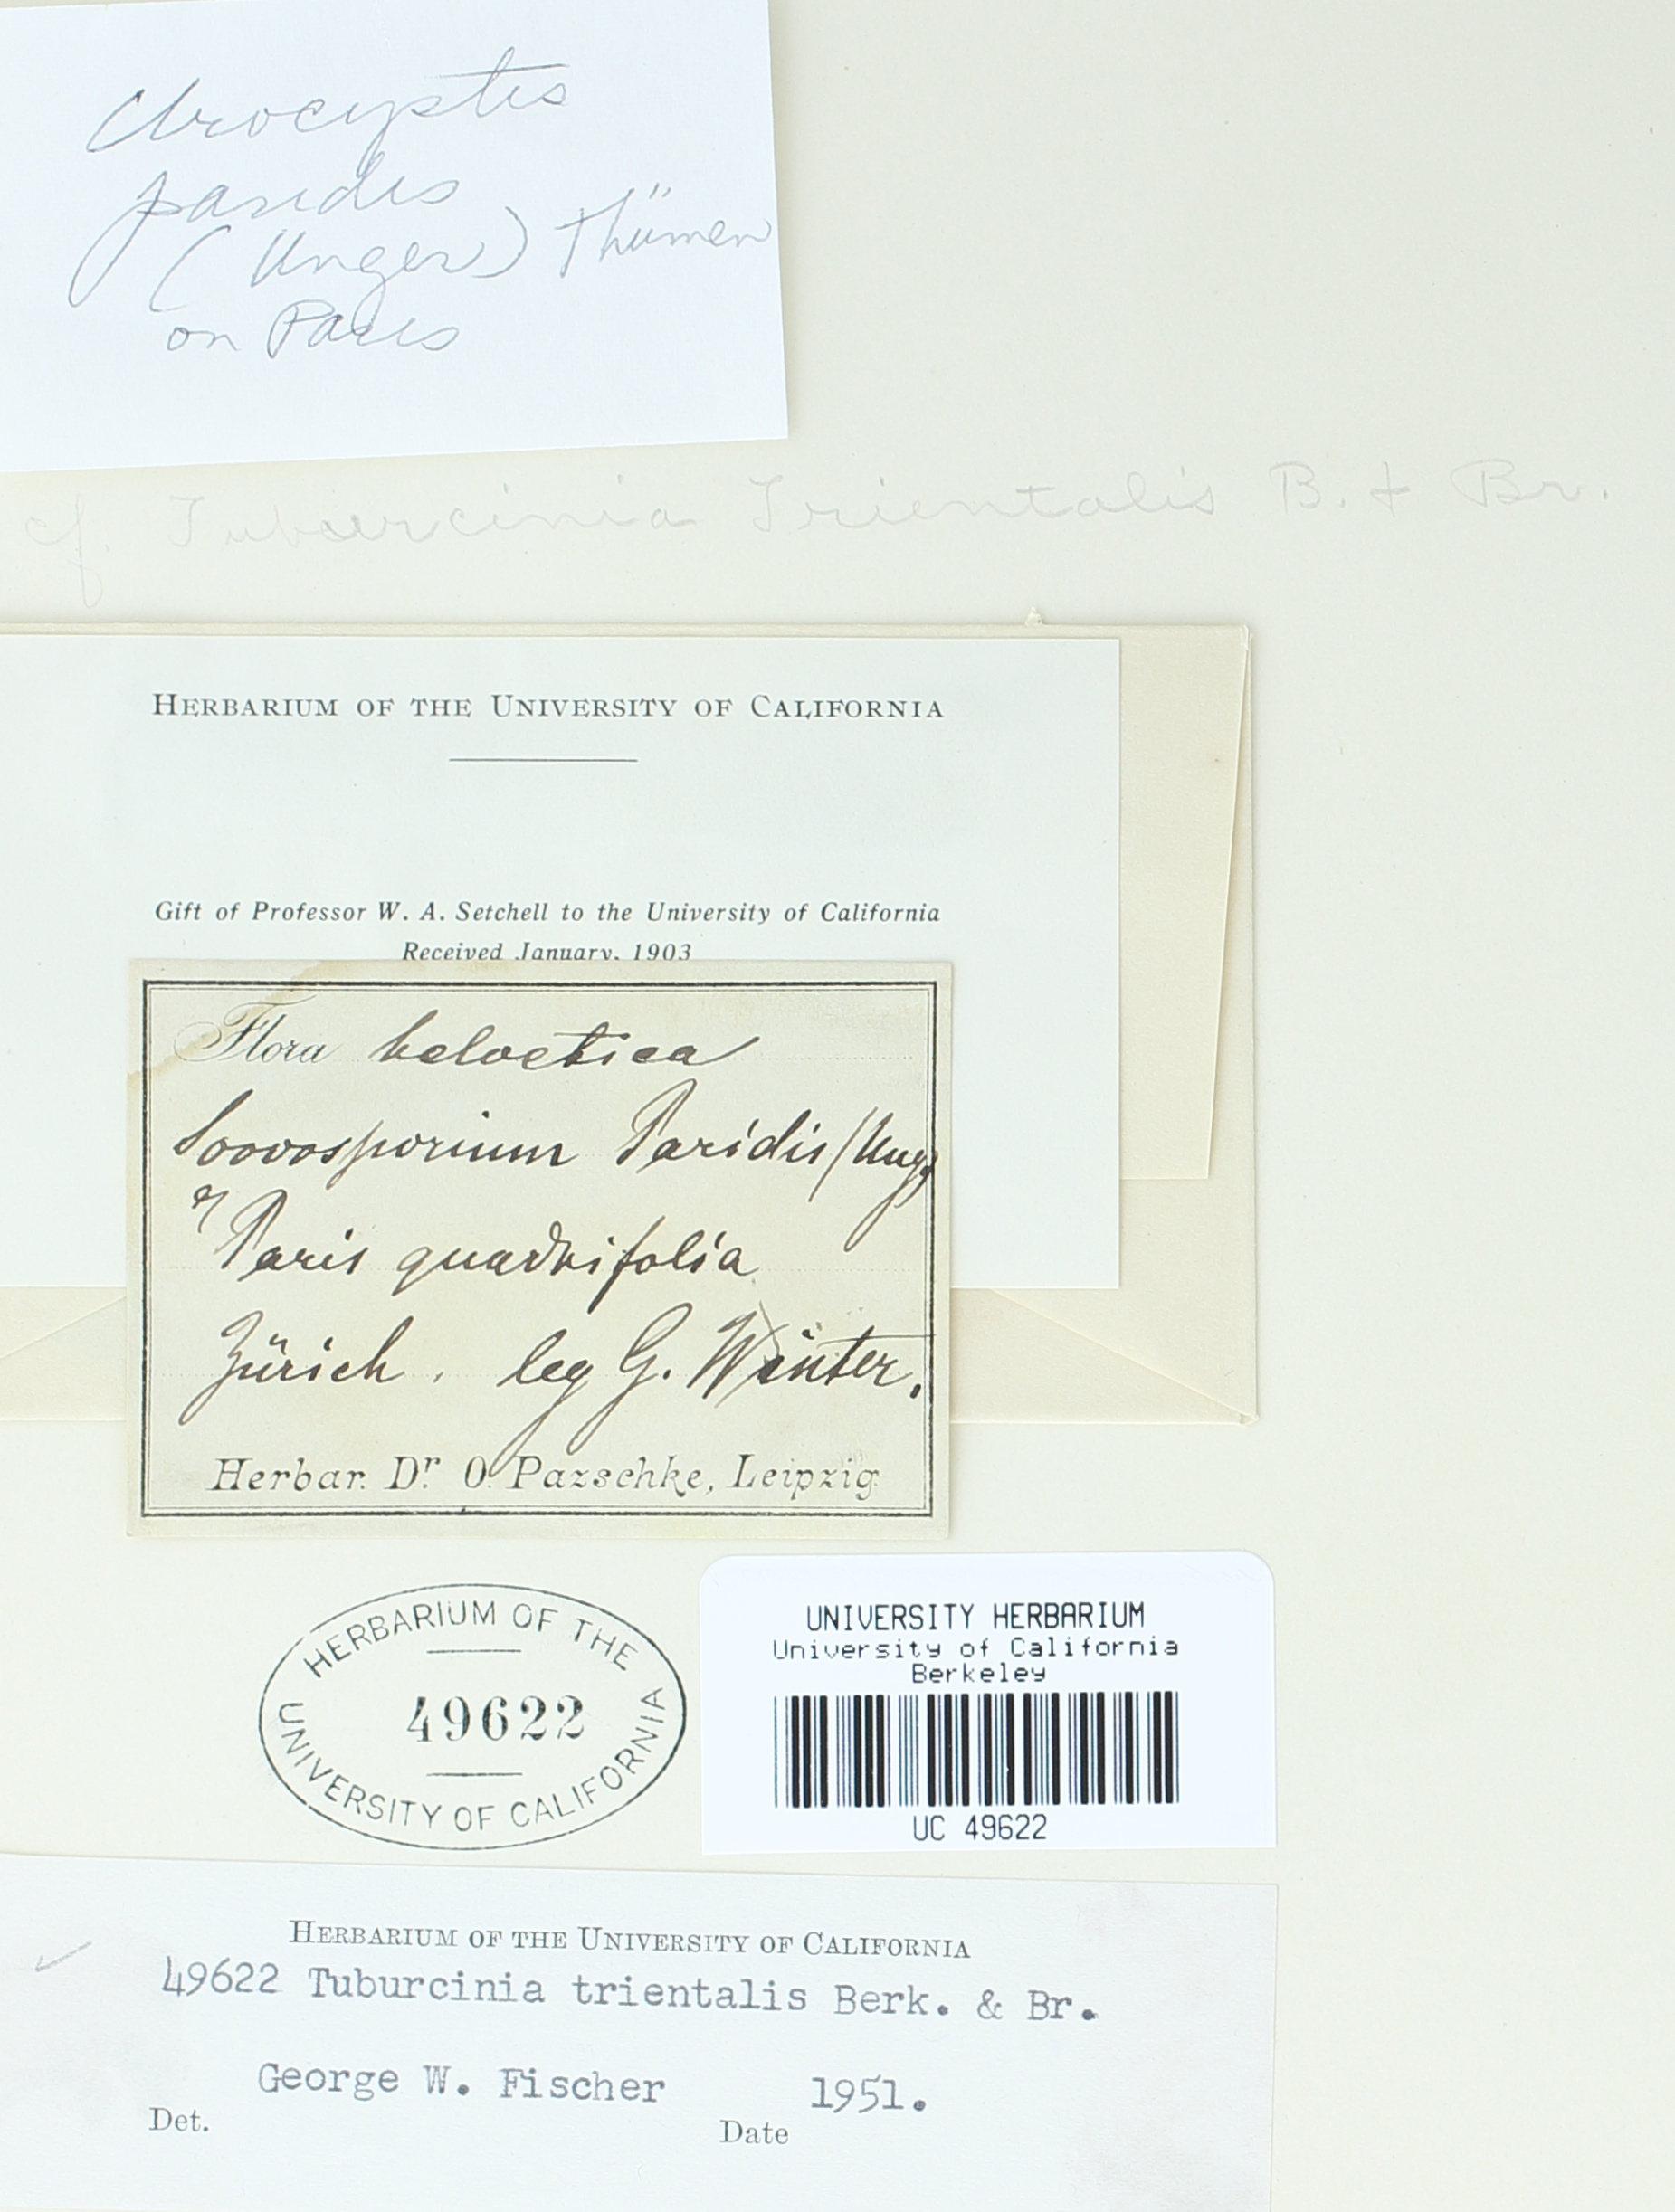 Urocystis
paridis
(Unger) Thümen
on Paris
cf. Tuburcinia Trientalis B. & Br.
HERBARIUM OF THE UNIVERSITY OF CALIFORNIA
Gift of Professor W. A. Setchell to the University of California
Received January, 1903
Flora helvetica
Sorosporium Paridis (Ung)
Paris quadrifolia
Zürich. leg G. Winter.
Herbar. Dr. O. Pazschke, Leipzig.
HERBARIUM OF THE
49622
UNIVERSITY OF CALIFORNIA
UNIVERSITY HERBARIUM
University of California
Berkeley
UC 49622
HERBARIUM OF THE UNIVERSITY OF CALIFORNIA
49622 Tuburcinia trientalis Berk. & Br.
George W. Fischer 1951.
Det. Date